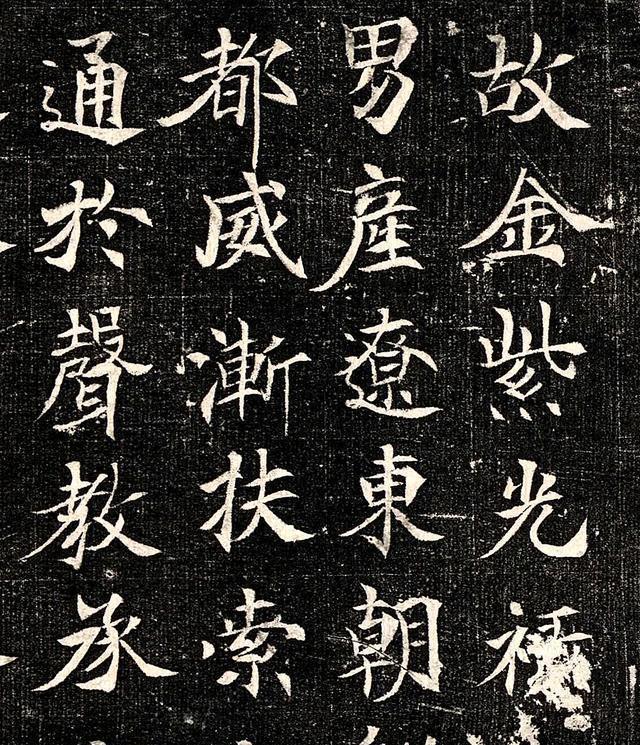 故金紫光祿
男產遼東朝
都威漸扶索
通於聲教承